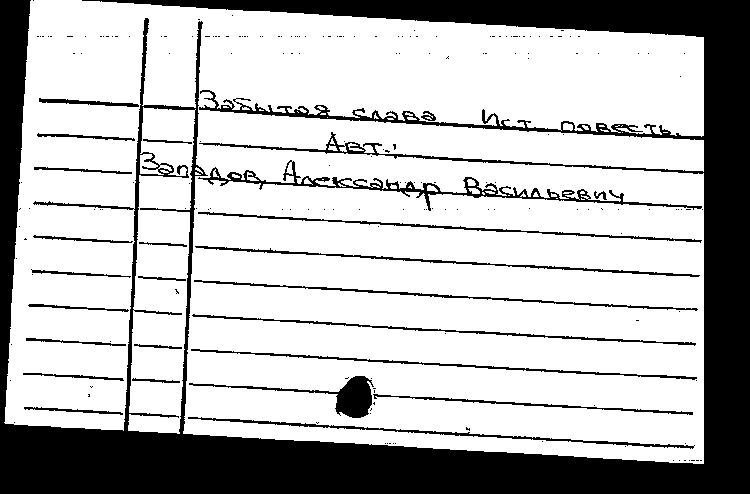 Забытая слава. Ист. повесть.
Авт.:
Западов, Александр Васильевич